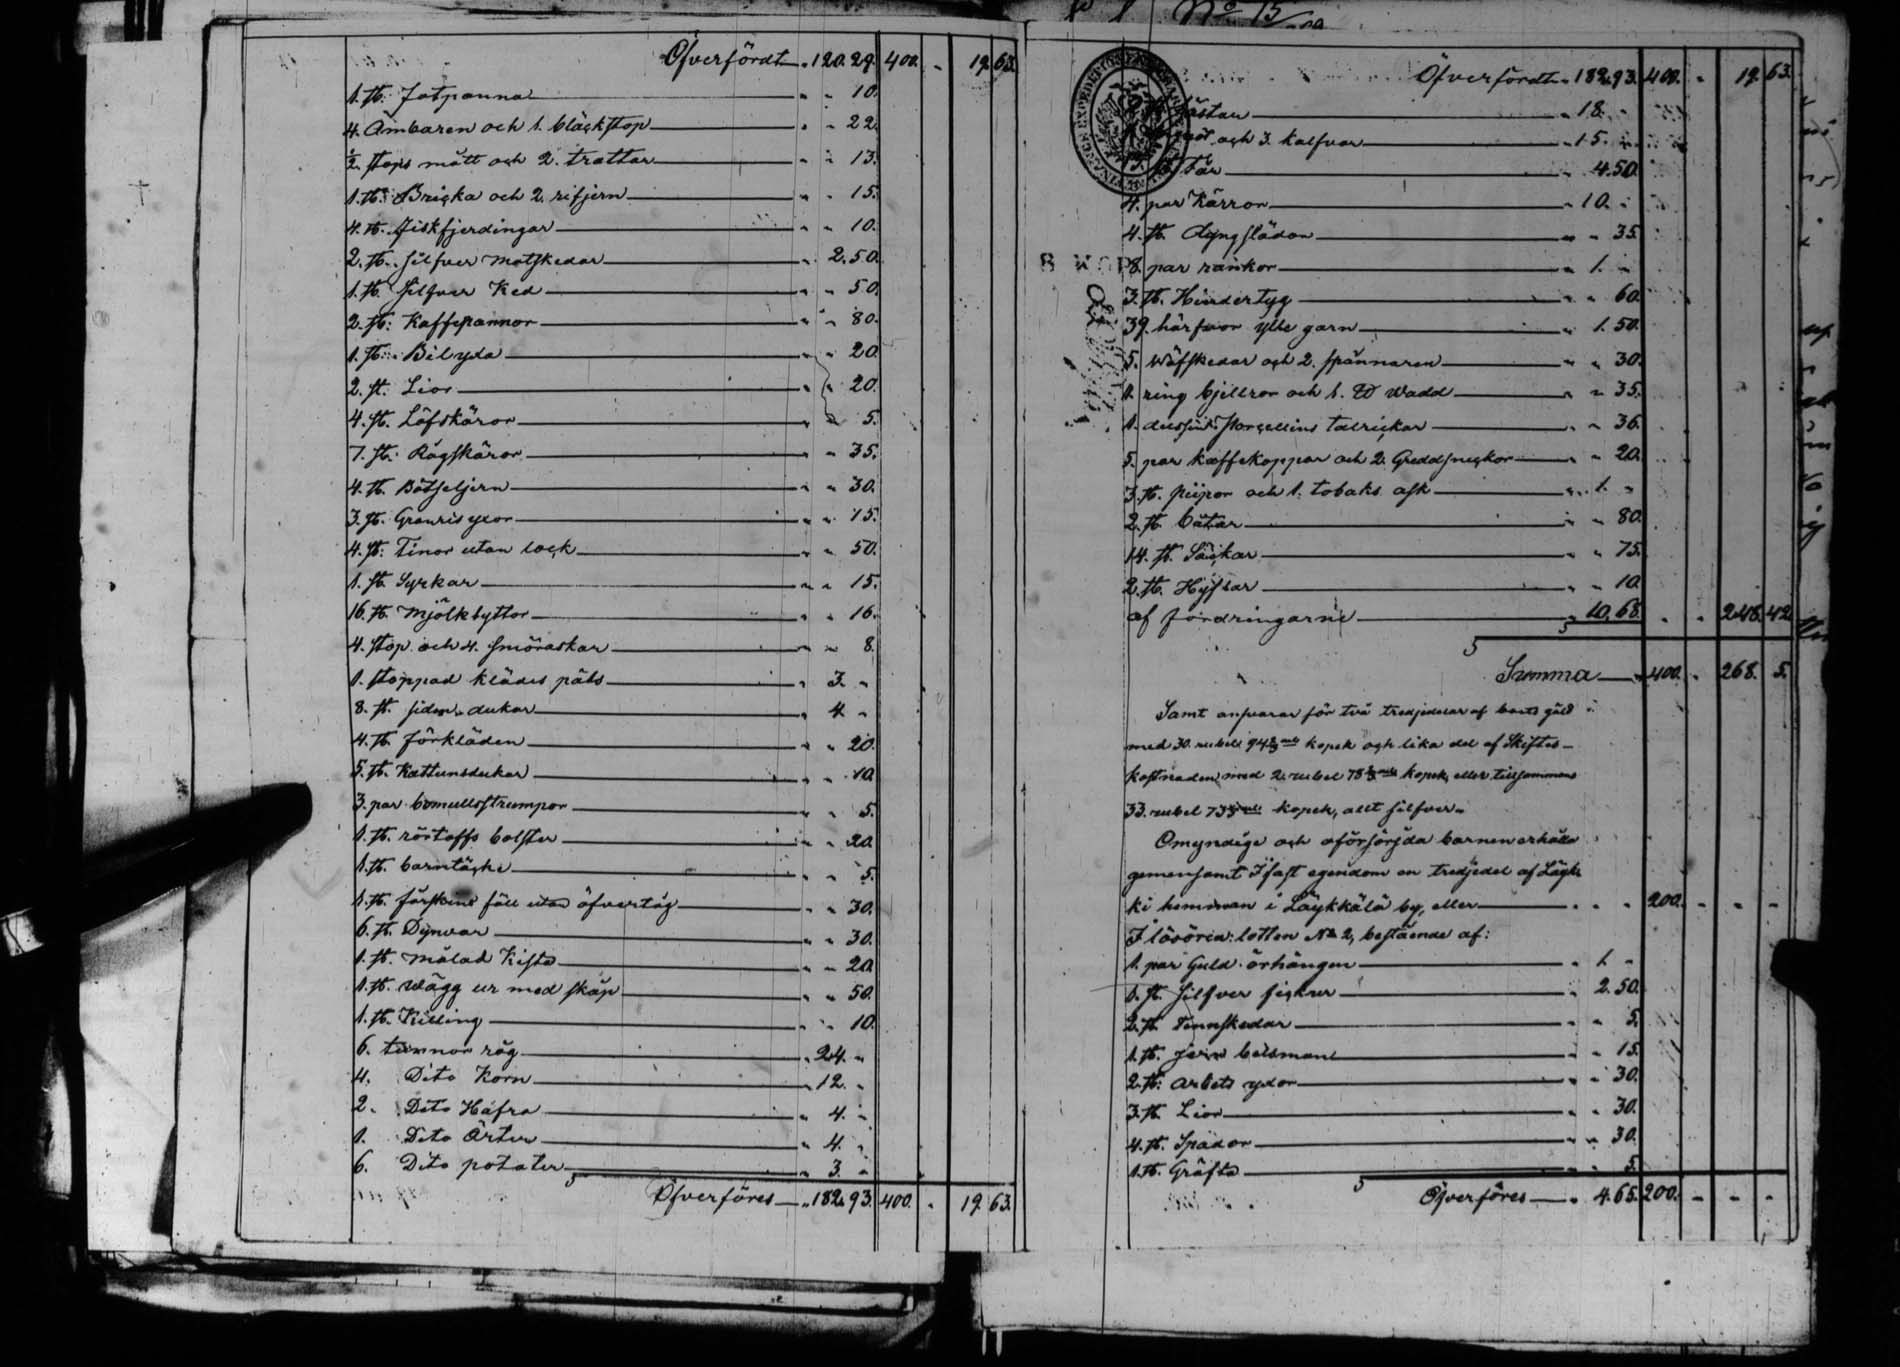 Öfverfördt 120. 29. 400. - 19. 63.
1. st. Jotpanna " " 10.
4. Ämbaren och 1. bläckstop " " 22.
½ stops mått och 2. trattar " " 13.
1. st. Bricka och 2. rifjern " " 15.
4. st. fiskfjerdingar " " 10.
2. st. silfver matskedar " 2. 50.
1. st. silfver Ked " " 50.
2. st. Kaffepannor " " 80.
1. st. Bilyxa " " 20.
2. st. Lior " " 20.
4. st. Löfskäror " " 5.
7. st. Rågskäror " " 35.
4. st. Betseljern " " 30.
3. st. Granris yxor " " 15.
4. st. Tinor utan lock " " 50.
1. st. Syrkar " " 15.
16. st. Mjölkbyttor " " 16.
4. stop och 4. smöraskar " " 8.
1. stoppad klädes päls " 3. "
8. st. siden dukar " 4. "
4. st. förkläden " " 20.
5. st. Kattunsdukar " " 10.
3. par bomullsstrumpor " " 5.
1. st. bolster " " 20.
1. st. barntäcke " " 5.
1. st. fårskins fäll utan öfvertåg " " 30.
6. st. Dynvar " " 30.
1. st. målad Kista " " 20.
1. st. Wägg ur med skåp " " 50.
1. st. Killing " " 10.
6. tunnor råg " 24. "
4. Dito Korn " 12. "
2. Dito Hafra " 4. "
1. Dito Ärter " 4. "
6. Dito potater " 3. "
Öfverföres " 182. 93. 400. " 19. 63.
No 13
Öfverfördt " 182. 93. 400. " 19. 63.
" 18. "
och 3. kalfvar " 15. "
Får " 4. 50.
4. par Kärror " 10. "
4. st. slädan " " 35.
8. par rankor " 1. "
3. st. Hindertyg " " 60.
39. härfvor ylle garn " 1. 50.
5. Wäfskedar och 2. spännaren " " 30.
1. ring bjellror och 1. Wadd " " 35.
1. dussin Porcellins talrickar " " 36.
5. par kaffekoppar och 2. Greddsneckor " " 20.
3. st. piipor och 1. tobaks ask " 1. "
2. st. båtar " " 80.
14. st. Säckar " " 75.
2. st. " " 10.
af fordringarne " 10. 68. " " 248. 42.
Summa 400. " 268. 5.
Samt ansvarar för två tredjedelar af boets gäld
med 30. rubel 94 kopek och lika del af Skiftes-
kostnaden med 2. rubel 78 kopek, eller tillsammans
33. rubel 73 kopek, allt silfver.
Omyndige och oförsörjda barnen erhålla
gemensamt I fast egendom en tredjedel af
hemman i Läykkälä by, eller " " 200. " " "
I lösöria: lotten No 2, bestående af:
1. par Guld örhängen " 1. "
1. st. silfver " 2. 50.
2. st. Tennskedar " " 5.
1. st. jern betsman " " 15.
2. st. arbets yxor " " 30.
3. st. Lior " " 30.
4. st. Spador " " 30.
1. st. Gräfta " " 5.
Öfverföres " 4. 65. 200. " " "